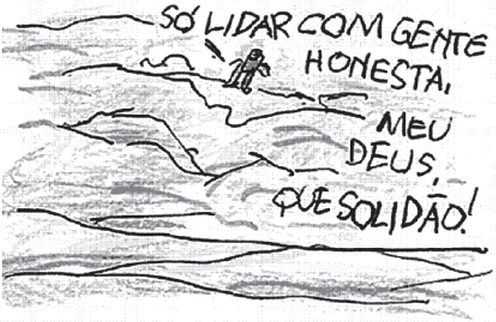 SÓ LIDAR COM GENTE
HONESTA,
MEU
DEUS,
QUE SOLIDÃO!